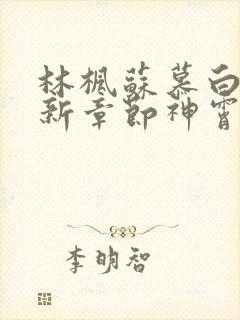 林楓蘇慕白
新章節神霄
李明智